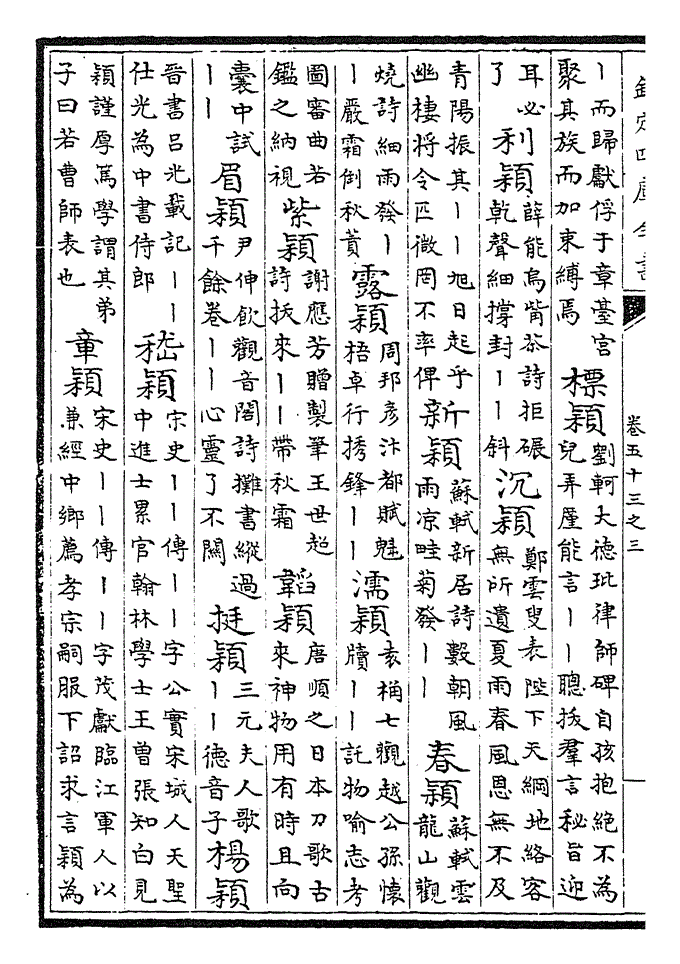 欽定四庫全書
卷五十三之三
丨而歸獻俘于章臺宮
聚其族而加束縛焉
標穎
劉軻大德玭律師碑自孩抱絕不為
兒弄壓能言丨丨聰抜羣言秘旨迎
耳必
了
利穎
薛能鳥觜茶詩拒碾
乾聲細撐封丨丨斜
沉穎
鄭雲叟表陛下天綱地絡容
無所遺夏雨春風恩無不及
青陽振其丨丨旭日起乎
幽棲將令匹微罔不率俾
新穎
蘇軾新居詩數朝風
雨凉畦菊發丨丨
春穎
蘇軾雲
龍山觀
燒詩細雨發丨
丨嚴霜倒秋蕡
露穎
周邦彦汴都賦魁
梧卓行捹鋒丨丨
濡穎
袁桷七觀越公孫懷
牘丨丨託物喻志考
圖審曲若
鑑之納視
紫穎
謝應芳贈製筆王世超
詩抜來丨丨帶秋霜
韜穎
唐順之日本刀歌古
來神物用有時且向
囊中試
丨丨
眉穎
尹伸飲觀音閣詩攤書縱過
千餘卷丨丨心靈了不關
挺穎
三元夫人歌
丨丨德音子
楊穎
晉書呂光載記丨丨
仕光為中書侍郎
嵇穎
宋史丨丨傳丨丨字公實宋城人天聖
中進士累官翰林學士王曾張知白見
穎謹厚篤學謂其弟
子曰若曹師表也
章穎
宋史丨丨傳丨丨字茂獻臨江軍人以
兼經中鄉薦孝宗嗣服下詔求言穎為